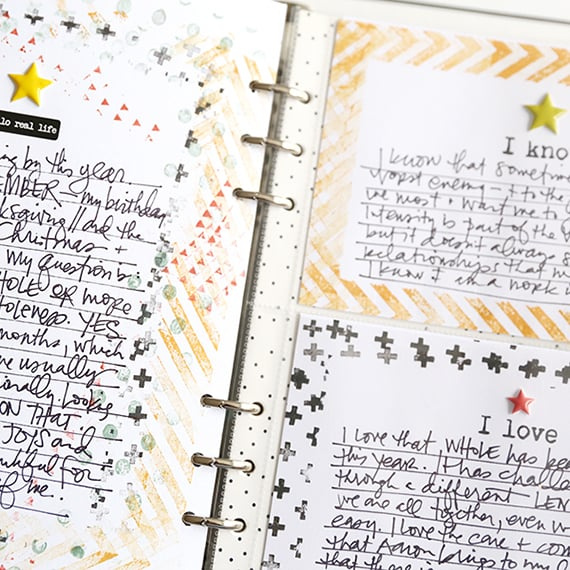 lo real life
ng by this year
EMBER - my birthday
ksgiving // and the
Christmas +
my question is:
HOLE or more
holeness. YES
months, which
re usually
ionally looking
ON THAT
JOYS and
utiful for
of me.
I kno
I know that sometim
worst enemy - + to the
we most + want me to
Intensity is part of the
but it doesn't always
relationships that m
I know I am a work i
I love
I love that WHOLE has bee
this year. It has challe
through a different LEN
we are all together, even w
easy. I love the care + com
that Aaron brings to my l